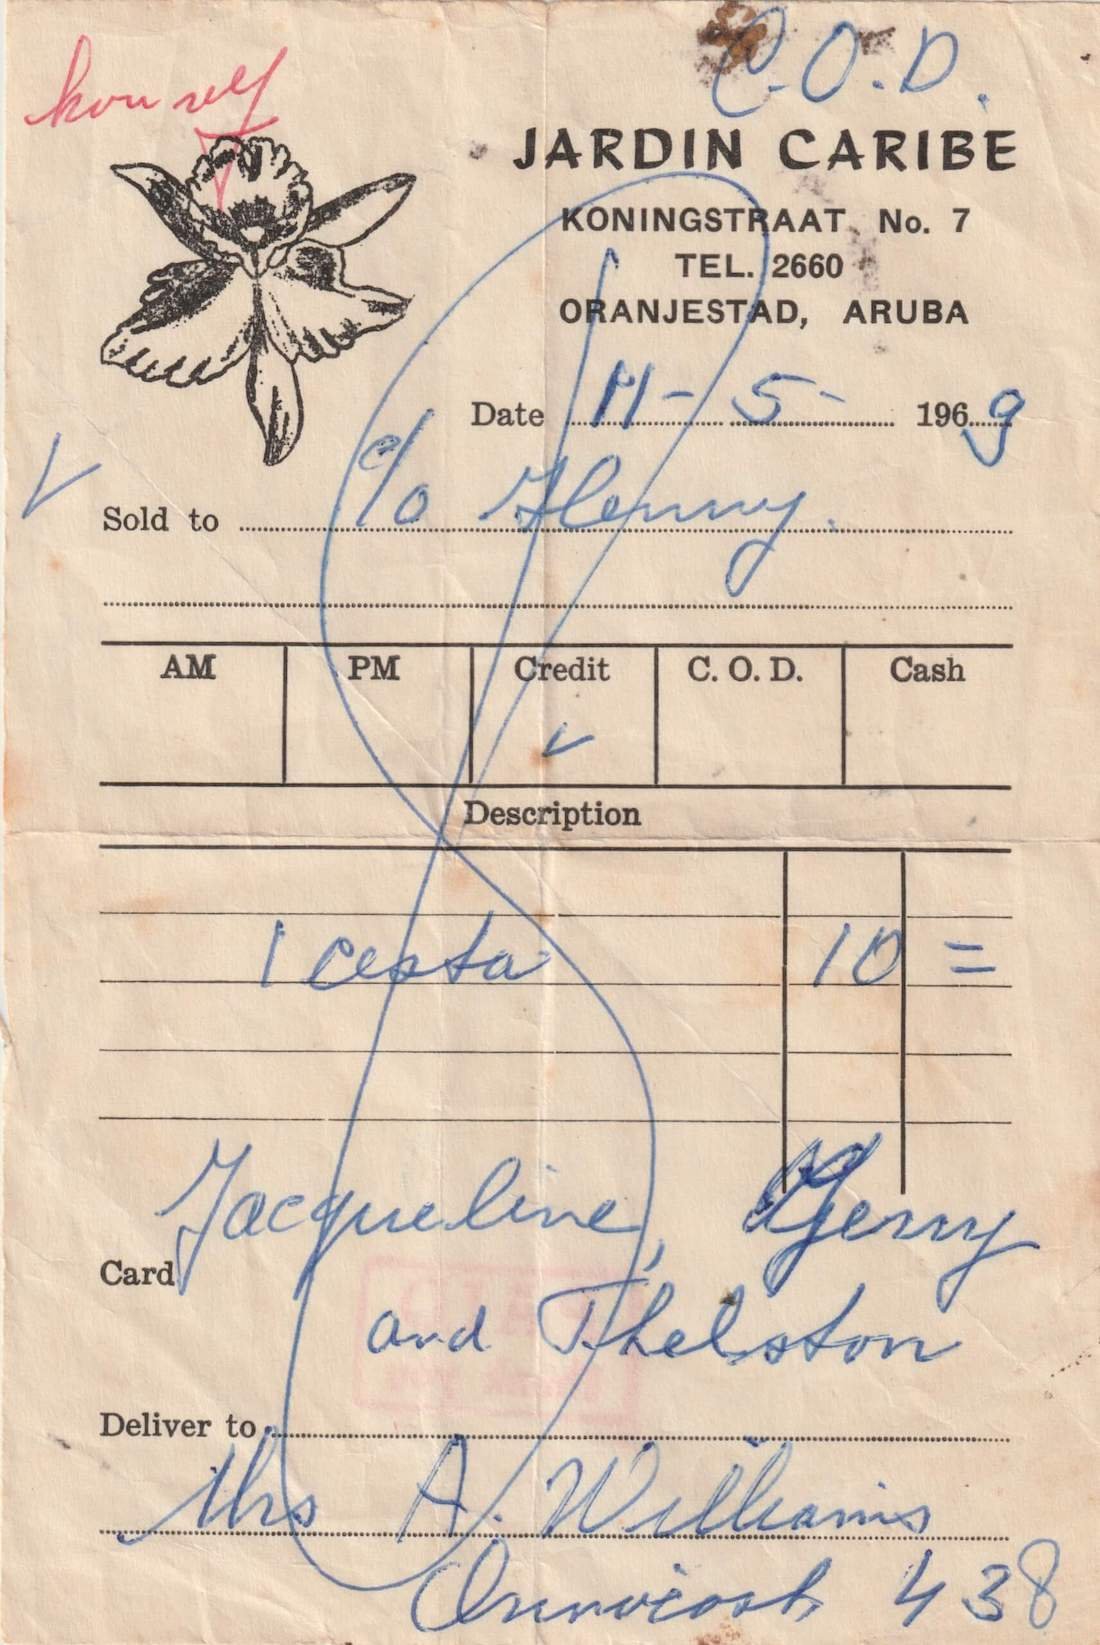 C.O.D.
JARDIN CARIBE
KONINGSTRAAT No. 7
TEL. 2660
ORANJESTAD, ARUBA
Date 11-5- 1969
Sold to c/o Henny.
AM PM Credit C. O. D. Cash
Description
1 cesta 10 =
Jacqueline, Gerry
Card
and Thelston
Deliver to
Mrs A. Williams
438